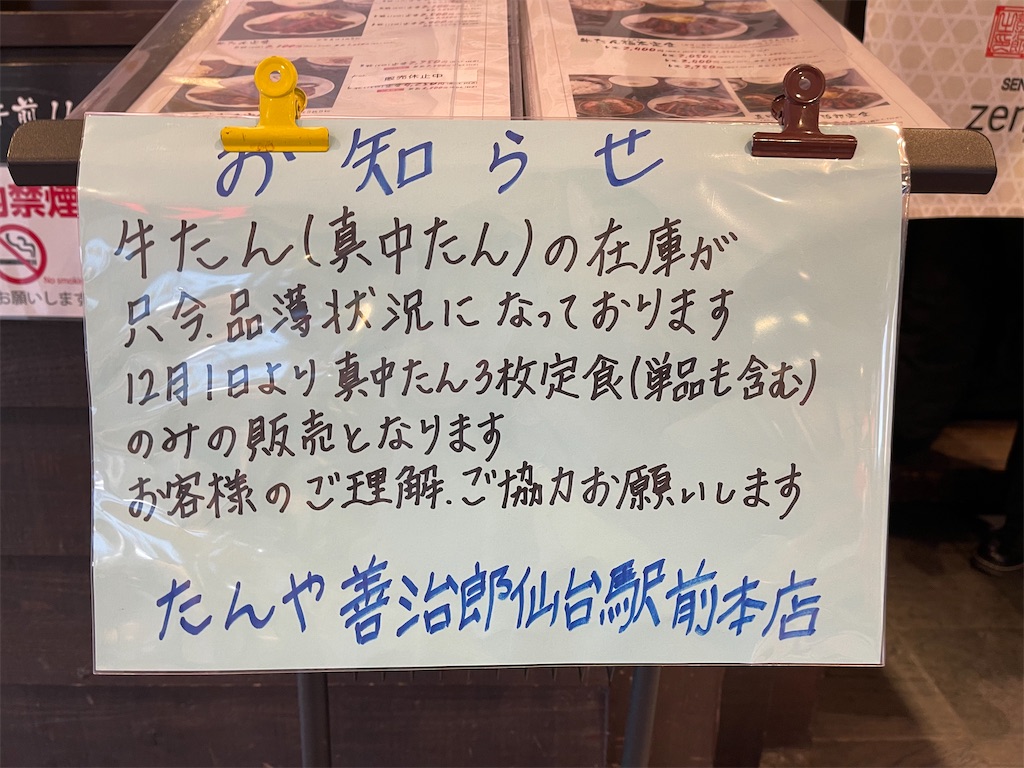 お知らせ
牛たん(真中たん)の在庫が
只今.品薄状況になっております
12月1日より真中たん3枚定食(単品も含む)
のみの販売となります
お客様のご理解.ご協力お願いします
たんや善治郎仙台駅前本店
販売休止中
禁煙
No smoking
お願いします
SEN
zen